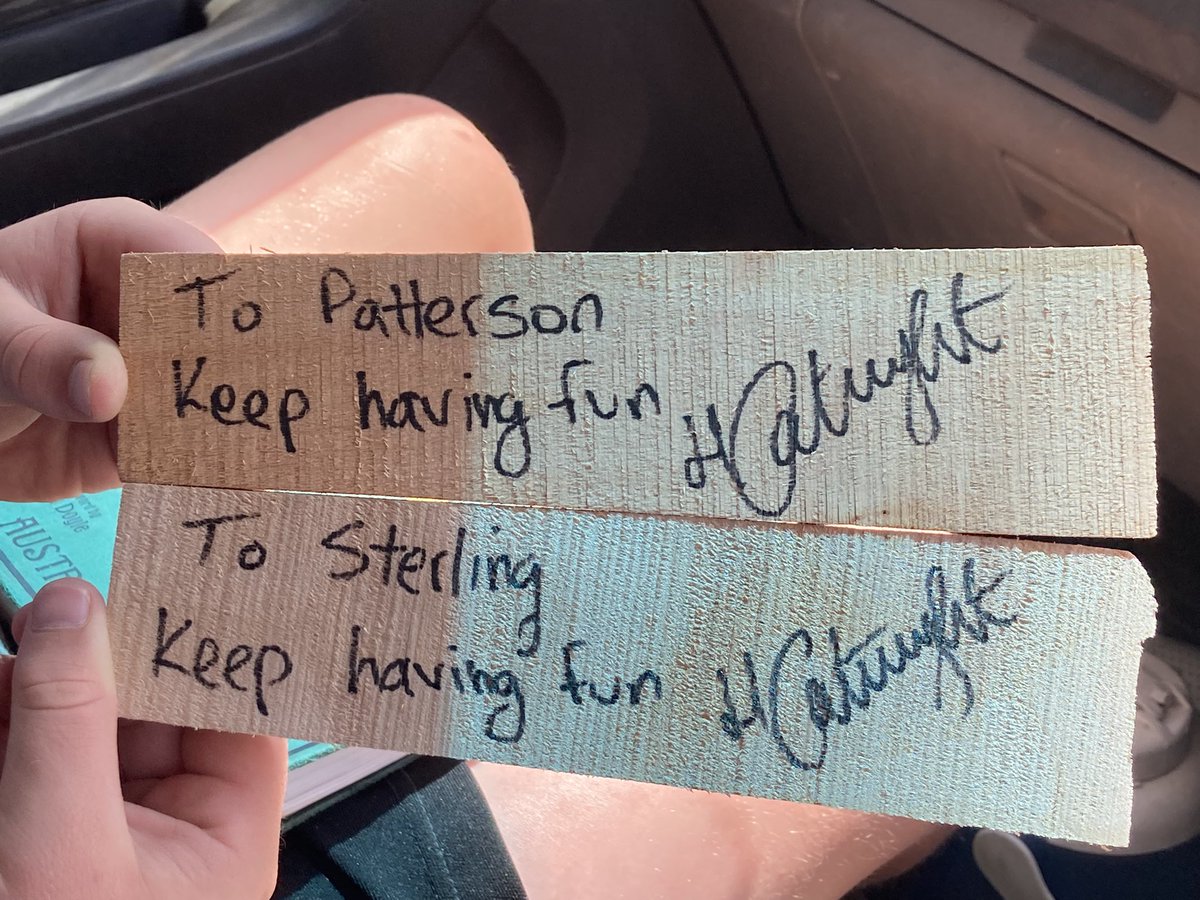 To Patterson
Keep having fun
HCatwright
To Sterling
Keep having fun
HCatwright
Doyle
AUST